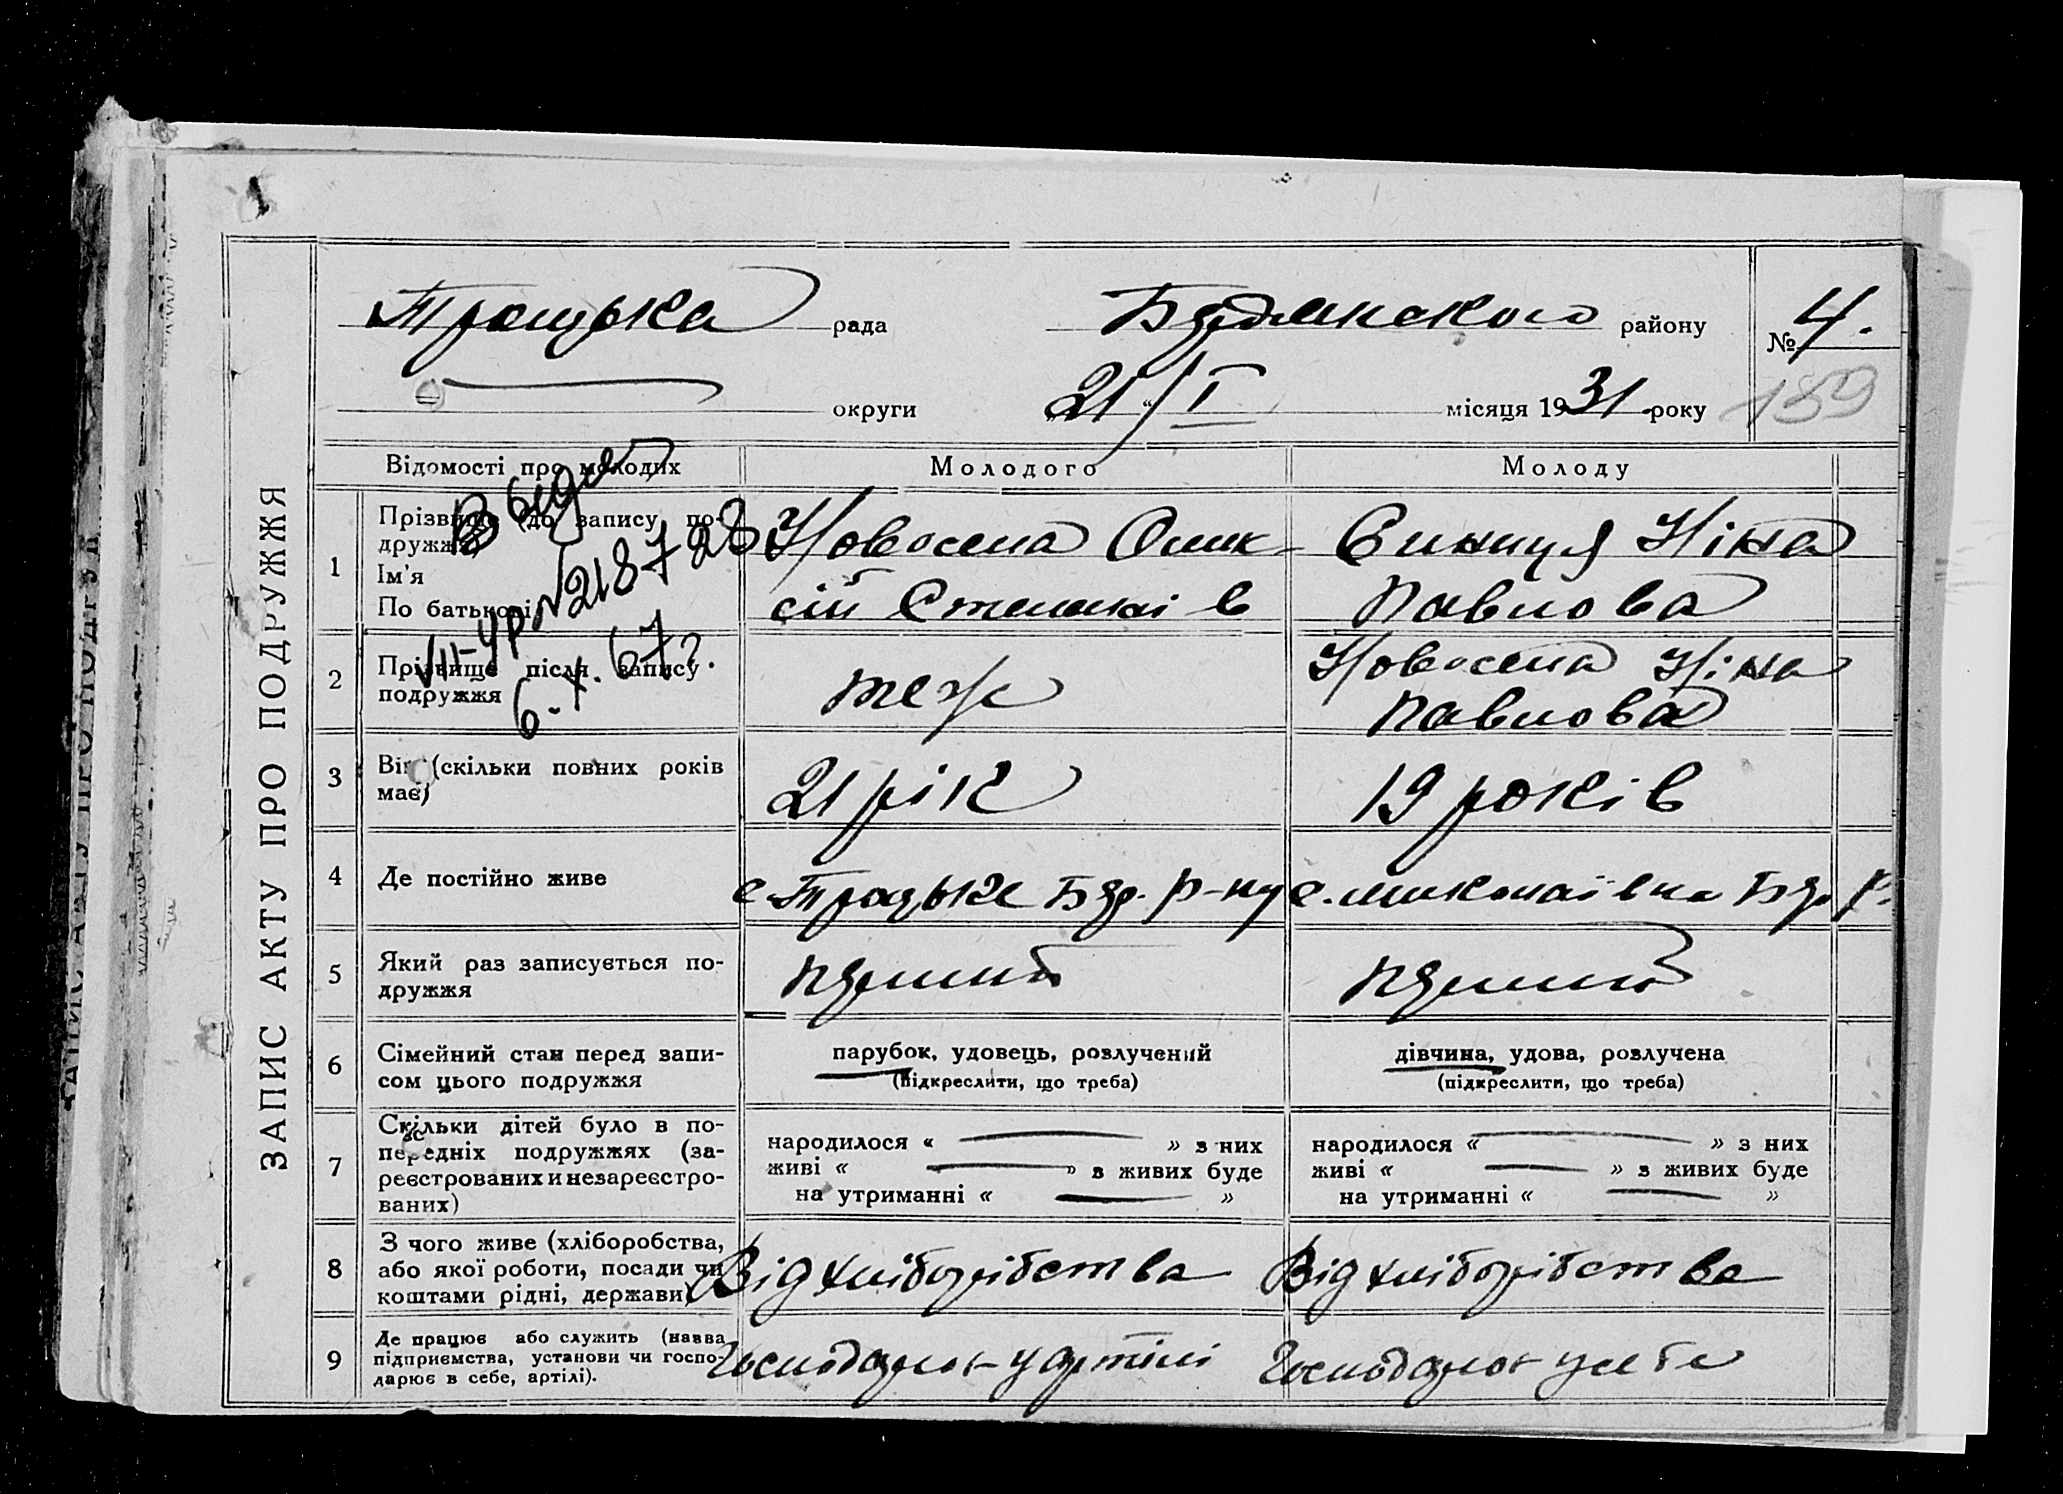 ЗАПИС АКТУ ПРО ПОДРУЖЖЯ
Троцька рада Будянского району № 4.
округи 21/I місяця 1931 року 189
Відомості про молодих Молодого Молоду
Выдан
VII-УР № 218728
6.X.67 г.
1 Прізвище (до запису по-
дружжя)
Ім'я
По батькові
Новосела Олек-
сій Степанів
Синиця Ніна
Павлова
2 Прізвище після запису
подружжя
теж
Новосела Ніна
Павлова
3 Вік (скільки повних років
має)
21 рік
19 років
4 Де постійно живе
с. Троцьке Буд. р-ну
с. Миколаївка Буд. р.
5 Який раз записується по-
дружжя
перший
перший
6 Сімейний стан перед запи-
сом цього подружжя
парубок, удовець, розлучений
(підкреслити, що треба)
дівчина, удова, розлучена
(підкреслити, що треба)
7 Скільки дітей було в по-
передніх подружжях (за-
реєстрованих и незареєстро-
ваних)
народилося « » з них
живі « » з живих буде
на утриманні « »
народилося « » з них
живі « » з живих буде
на утриманні « »
8 З чого живе (хліборобства,
або якої роботи, посади чи
коштами рідні, держави)
Від хліборобства
Від хліборобства
9 Де працює або служить (назва
підприємства, установи чи госпо-
дарює в себе, артілі).
Господарює у артілі
Господарює у себе